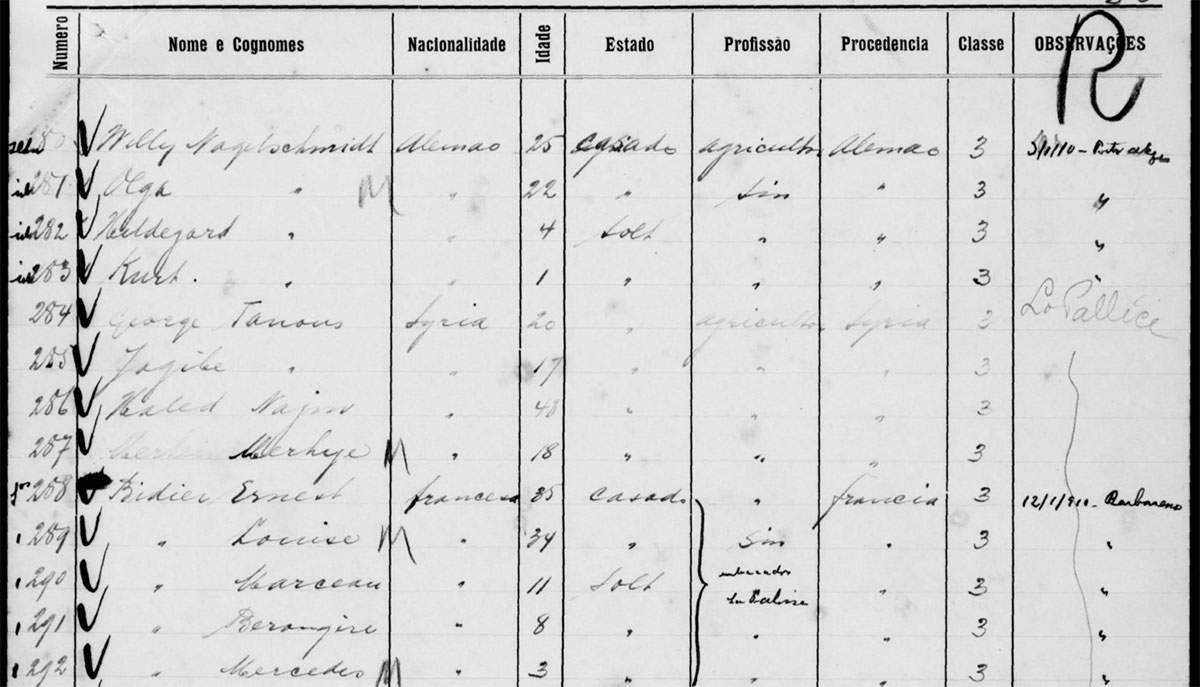 Numero Nome e Cognomes Nacionalidade Idade Estado Profissão Procedencia Classe OBSERVAÇÕES
R
Willy Nagelschmidt Alemao 25 casado agricultor Alemao 3
281 Olga " M " 22 " sin " 3 "
282 Hildegard " " 4 Solt " " 3 "
283 Kurt. " " 1 " " " 3 "
284 George Tanous Syria 20 " agricultor Syria 3 La Pallice
285 " " 17 " " " 3
286 Kaled Najm " 48 " " " 3
287 Merhye M " 18 " " " 3
288 Bidier Ernest francesa 35 casado " francia 3 12/1/910 -
289 " Louise M " 34 " sin " 3 "
290 " Marceau " 11 Solt embarcados " 3 "
La Palisse
291 " Berangire " 8 " " " 3 "
292 " Mercedes M " 3 " " " 3 "